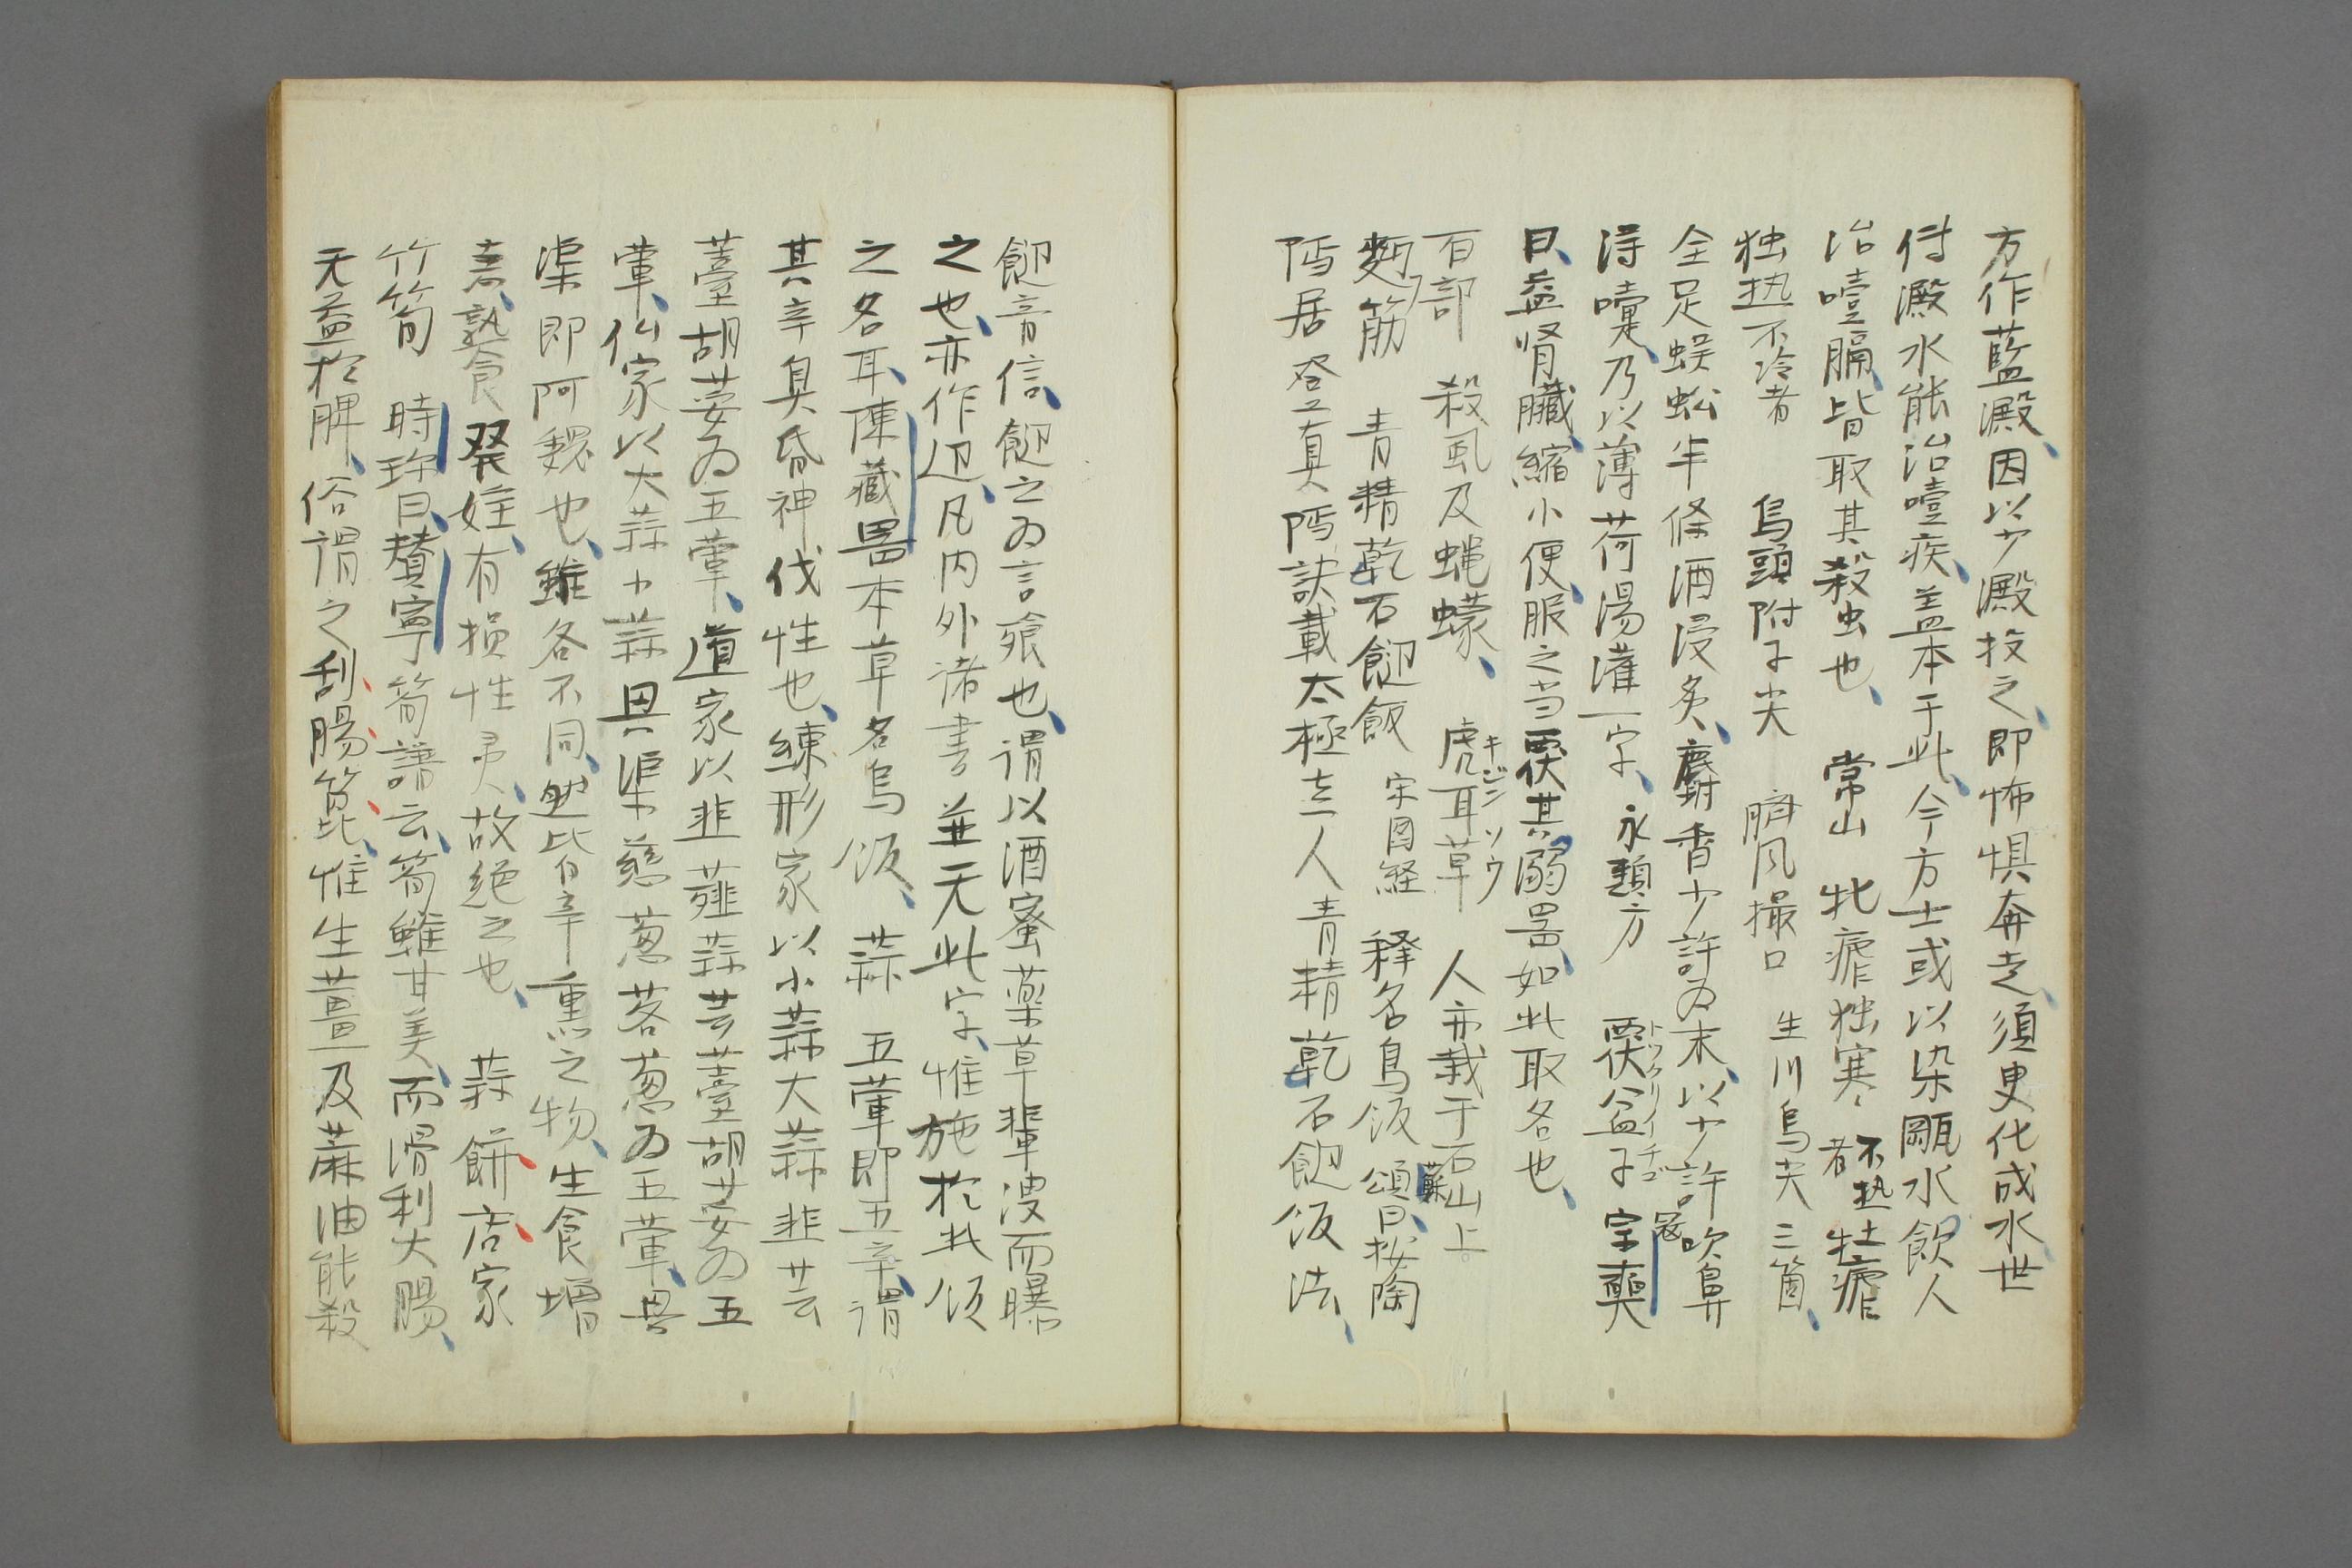 方作藍澱、因以少澱投之、即怖懼奔走、須更化成水、世
付澱水能治噎疾、盖本于此、今方士或以染甌水飲人
治噎膈、皆取其殺虫也、　常山　牝瘧独寒、不热者　牡瘧
独热不冷者　烏頭附子尖　臍风撮口　生川烏尖三箇、
全足蜈蚣半條酒浸炙、麝香少許为末、以少許吹鼻
得嚏、乃以薄荷湯灌一字、永類方　覆盆子　宗奭
曰、益肾臓、縮小便、服之当覆其溺噐、如此取名也、
百部　殺虱及蝿蠓、　虎耳草　人亦栽于石山上。
キジンソウ
トツクリイチゴ
寇
麪筋　青精乾石䭀飯　宋图経　释名烏饭　頌曰、按陶
隠居登真隠訣載太極真人青精乾石䭀饭法、
䭀音信、䭀之为言飱也、谓以酒蜜藥草輩溲而曝
之也、亦作𨒂、凡内外诸書並无此字、惟施於此饭
之名耳、陳藏噐本草名烏饭、　蒜　五葷即五辛、谓
其辛臭昏神伐性也、練形家以小蒜大蒜韭芸
薹胡荽为五葷、道家以韭薤蒜芸薹胡荽为五
葷、仙家以大蒜小蒜興渠慈葱茖葱为五葷、興
渠即阿魏也、雖各不同、然皆辛熏之物、生食増
恚、熟食發婬、有損性灵、故絶之也、　蒜　餅店家
竹筍　時珍曰、賛寧筍譜云、筍雖甘美、而滑利大腸、
无益於脾、俗謂之刮腸篦、惟生薑及蔴油能殺